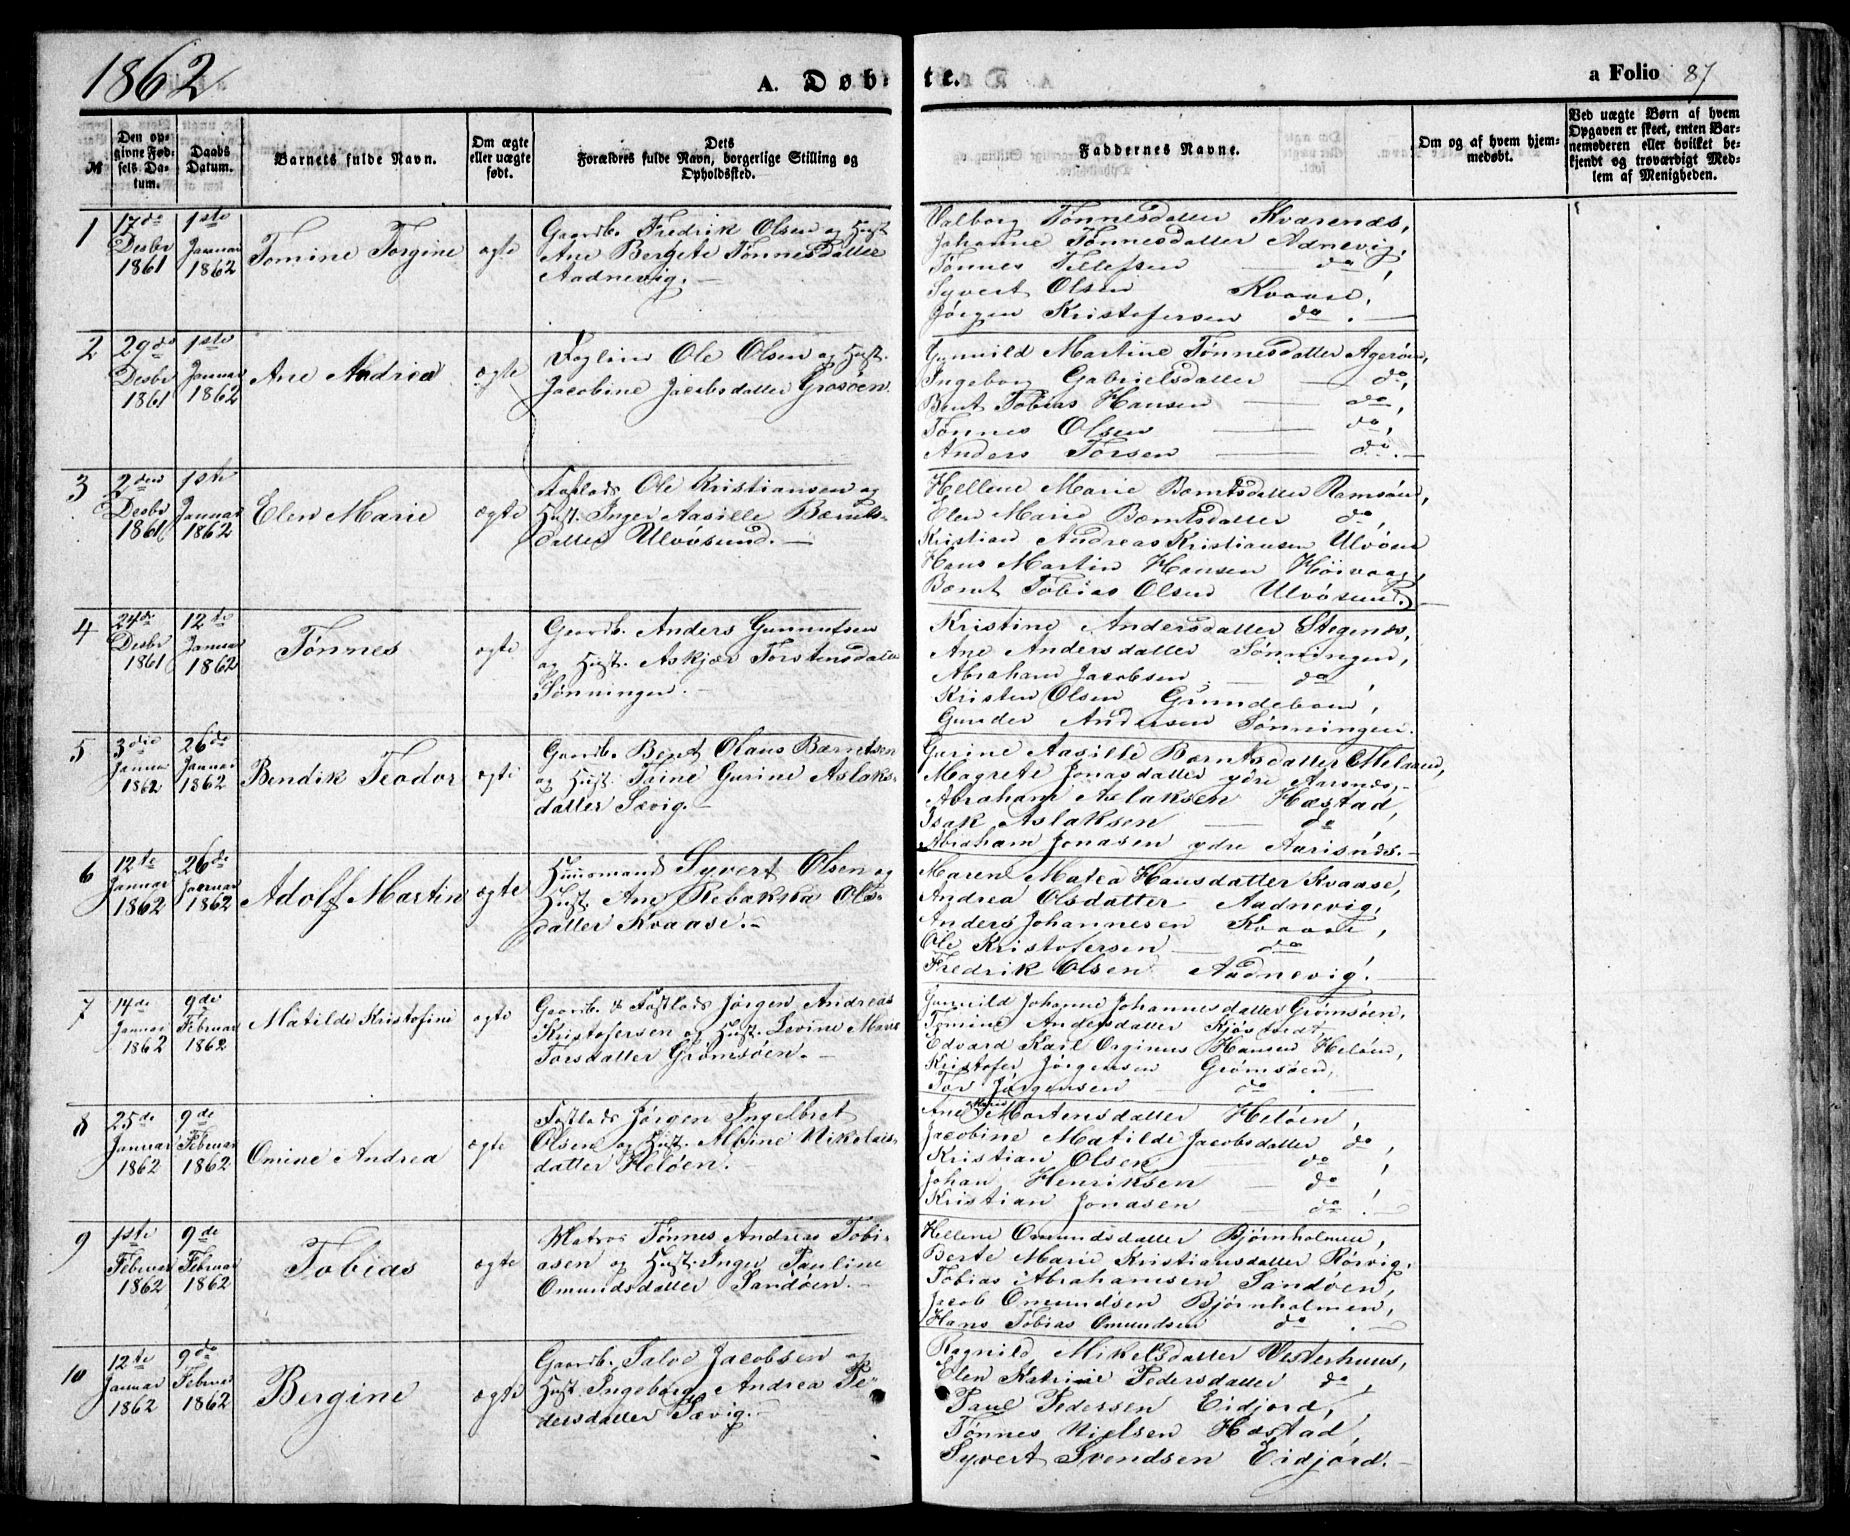 1862
A. Døbte.
a Folio 87
№
Den op-
givne Fød-
sels Da-
tum.
Daabs
Datum.
Barnets fulde Navn.
Om ægte
eller uægte
født.
Dets
Forældres fulde Navn, borgerlige Stilling og
Opholdssted.
Faddernes Navne.
Om og af hvem hjem-
medøbt.
Ved uægte Børn af hvem
Opgaven er skeet, enten Bar-
nemoderen eller hvilket be-
kjendt og troværdigt Med-
lem af Menigheden.
1
17de
Desbr
1861
1ste
Januar
1862
Tomine Torgine
ægte
Gaardb. Fredrik Olsen og Hust
Ane Bergete Tønnesdatter
Aadnevig.
Valborg Tønnesdatter Kvarenæs,
Johanne Tønnesdatter Adnevig,
Tønnes Tellefsen do,
Syvert Olsen Kvaase,
Jørgen Kristofersen do.
2
29de
Desbr
1861
1ste
Januar
1862
Ane Andrea
ægte
Ole Olsen og Hust.
Jacobine Jacobsdatter Grosøen.
Gunnild Martine Tønnesdatter Agerøen,
Ingeborg Gabrielsdatter do,
Bent Tobias Hansen do,
Tønnes Olsen do,
Anders Torsen do.
3
2den
Desbr
1861
1ste
Januar
1862
Elen Marie
ægte
Fastlods Ole Kristiansen og
Hust. Inger Aasille Bærnts-
datter Ulvøsund.
Hellene Marie Bærntsdatter Ramsøen,
Elen Marie Bærntsdatter do,
Kristian Andreas Kristiansen Ulvøsu
Hans Martin Hansen Høivaag,
Bærnt Tobias Olsen Ulvøsund.
4
24de
Desbr
1861
12te
Januar
1862
Tønnes
ægte
Gaardb. Anders Gunnufsen
og Hust. Askjær Torstensdatter
Tønningen.
Kristine Andersdatter Stegenæs,
Ane Andersdatter Tønningen,
Abraham Jacobsen do,
Kristen Olsen Grundeboen,
Gunder Andersen Tønningen.
5
3die
Januar
1862
26de
Januar
1862
Bendik Teodor
ægte
Gaardb. Bent Olaus Bærntsen
og Hust. Taine Gurine Aslaks-
datter Sævig.
Gurine Aasille Bærntsdatter Melaaen,
Magrete Jonasdatter ydre Aarsnæs,
Abraham Aslaksen Hæstad,
Isak Aslaksen do
Abraham Jonasen ydre Aarisnæs.
6
12te
Januar
1862
26de
Januar
1862
Adolf Martin
ægte
Huusmand Syvert Olsen og
Hust. Ane Rebakka Ols-
datter Kvaase.
Maren Matea Hansdatter Kvaase,
Andrea Olsdatter Aadnevig,
Anders Johannesen Kvaase,
Ole Kristofersen do
Fredrik Olsen Aadnevig.
7
14de
Januar
1862
9de
Februar
1862
Matilde Kristofine
ægte
Gaardb. & Fastlods Jørgen Andreas
Kristofersen og Hust. Levine Marie
Torsdatter Grømsøen.
Gunnild Johanne Johannesdatter Grømsøen,
Tomine Andersdatter Kjøstvedt,
Edvard Karl Orginus Hansen Heløen,
Kristofer Jørgensen Grømsøen,
Tor Jørgensen do.
8
25de
Januar
1862
9de
Februar
1862
Omine Andrea
ægte
Fastlods Jørgen Ingelbret
Olsen og Hust. Albine Nikolais-
datter Heløen.
Ane Marie Mortensdatter Heløen,
Jacobine Matilde Jacobsdatter do,
Kristian Olsen do,
Johan Henriksen do,
Kristian Jonasen do.
9
1ste
Februar
1862
9de
Februar
1862
Tobias
ægte
Matros Tønnes Andreas Tobi-
asen og Hust. Inger Pauline
Omundsdatter Sandøen.
Hellene Omundsdatter Bjørnholmen,
Berte Marie Kristiansdatter Rørvig,
Tobias Abrahamsen Sandøen,
Jacob Omundsen Bjørnholmen,
Hans Tobias Omundsen do.
10
12te
Januar
1862
9de
Februar
1862
Bergine
ægte
Gaardb. Salve Jacobsen og
Hust Ingeborg Andrea Pe-
dersdatter Sævig.
Ragnild Mikelsdatter Vesterhuus,
Elen Katrine Pedersdatter do,
Paul Pedersen Eidjord,
Tønnes Nielsen Hæstad,
Syvert Svendsen Eidjord.